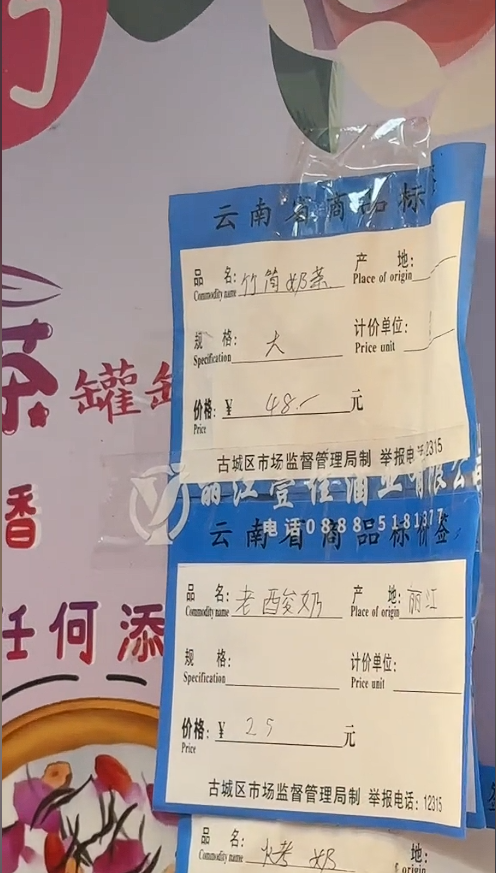 茶 罐
香
任何添
云南省商品标
品 名: 竹筒奶茶 产 地:
Commodity name Place of origin
规 格: 大 计价单位:
Specification Price unit
价格: ¥ 48.- 元
Price
古城区市场监督管理局制 举报电 2315
电话0888-5181377
云南省商品标价签
品 名: 老酸奶 产 地: 丽江
Commodity name Place of origin
规 格: 计价单位:
Specification Price unit
价格: ¥ 25 元
Price
古城区市场监督管理局制 举报电话: 12315
品 名: 烤奶 地:
Commodity name f origin